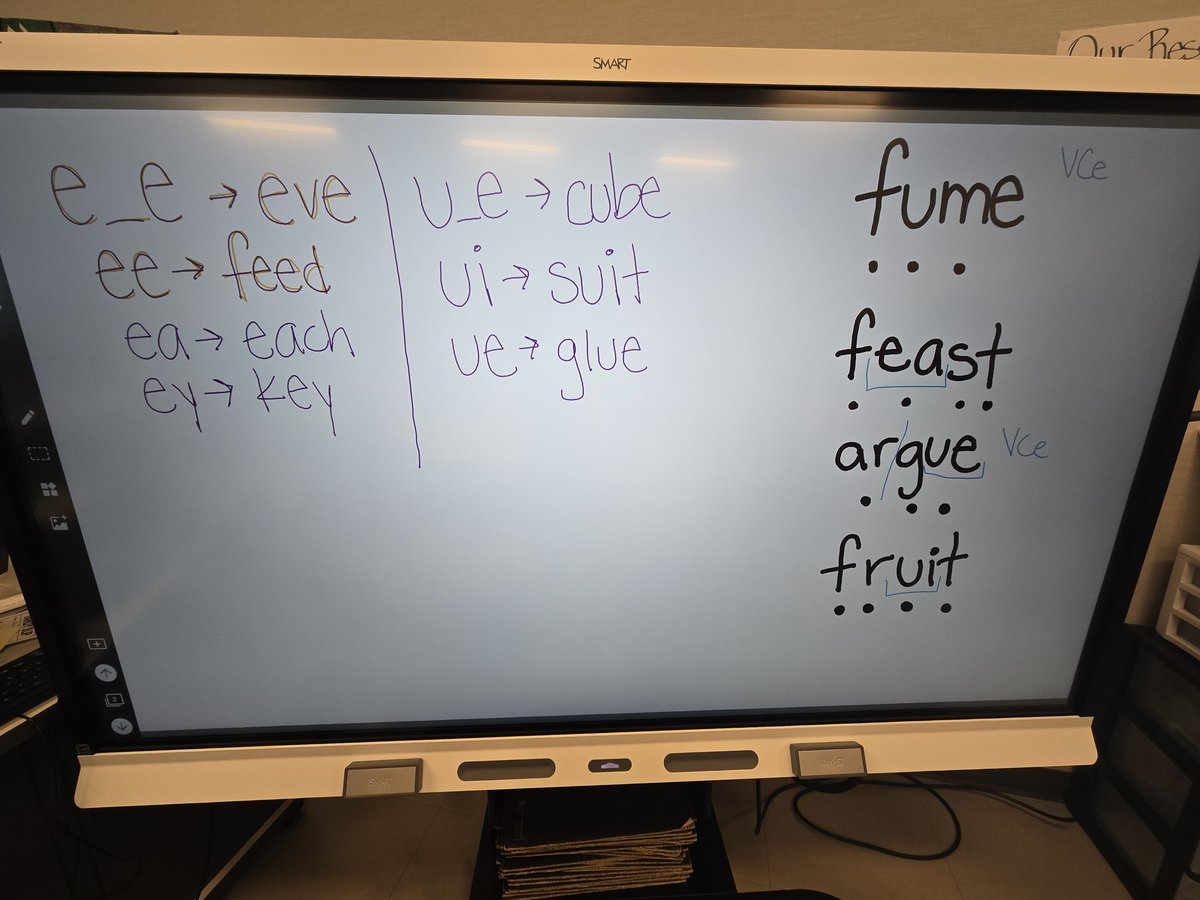 SMART
Our Res
e_e → eve
ee → feed
ea → each
ey → key
u_e → cube
ui → suit
ue → glue
fume VCe
feast
argue VCe
fruit